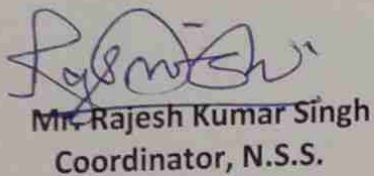 Mr. Rajesh Kumar Singh
Coordinator, N.S.S.